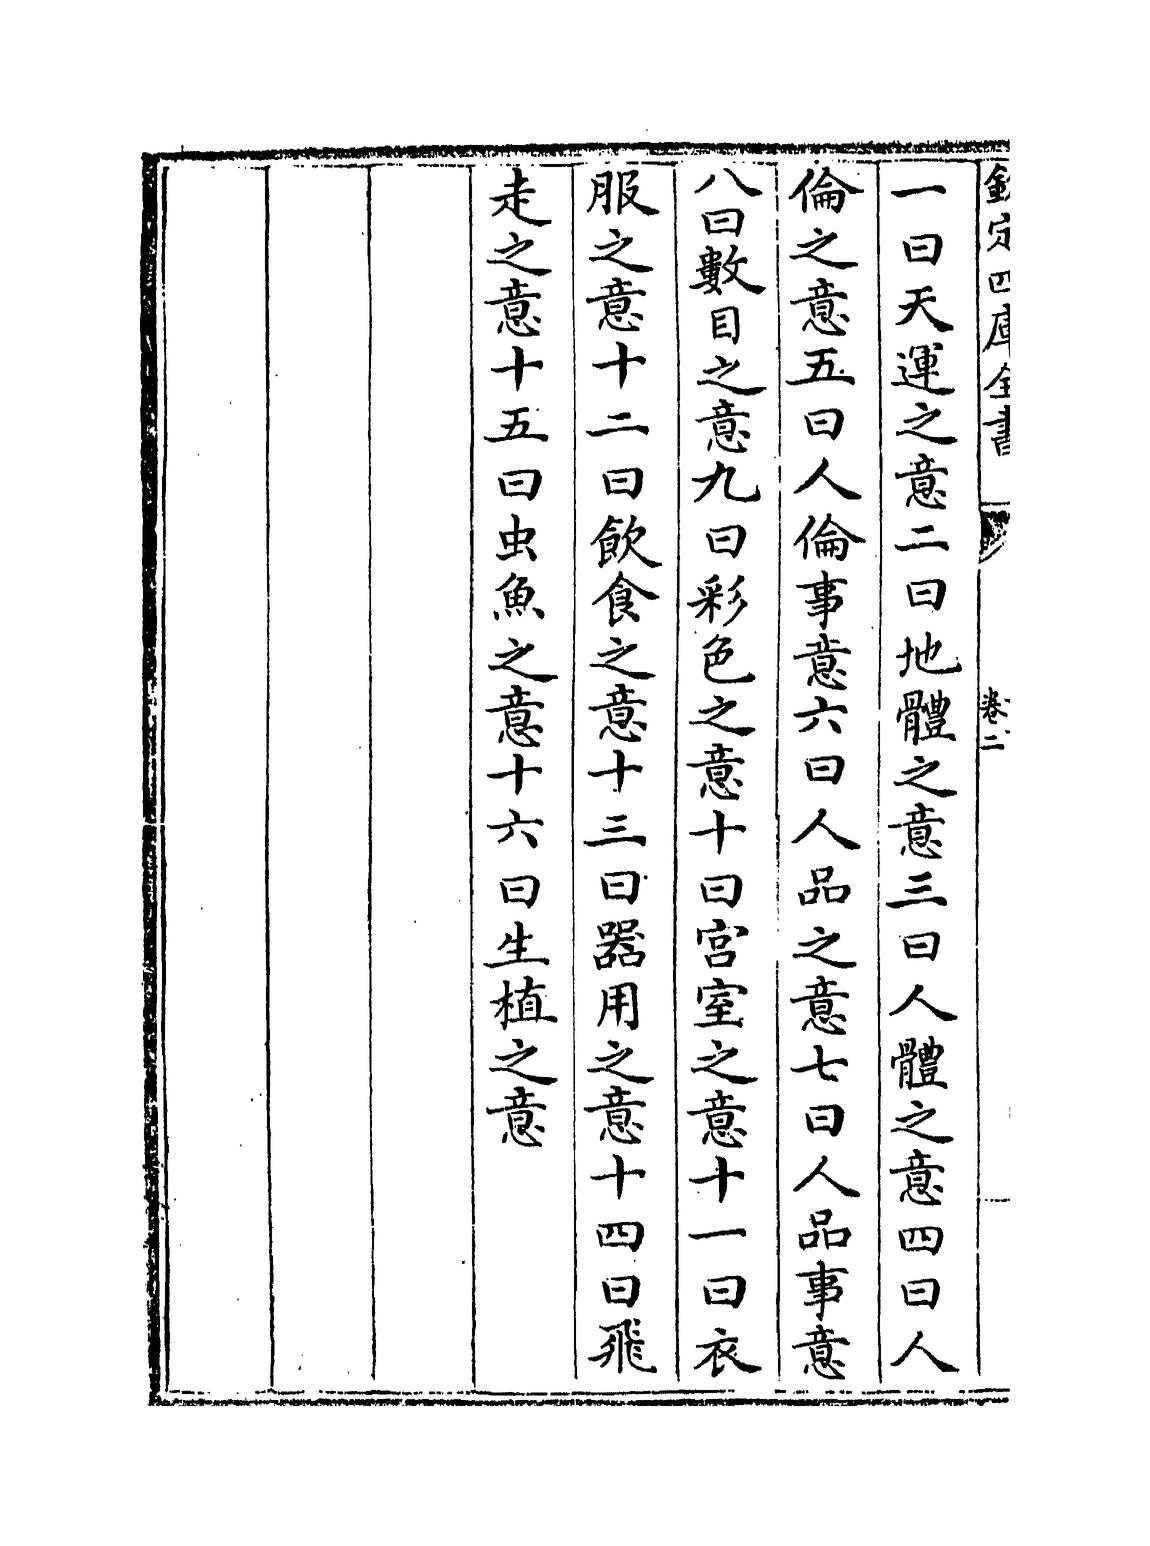 欽定四庫全書
卷二
一曰天運之意二曰地體之意三曰人體之意四曰人
倫之意五曰人倫事意六曰人品之意七曰人品事意
八曰數目之意九曰彩色之意十曰宫室之意十一曰衣
服之意十二曰飲食之意十三曰器用之意十四曰飛
走之意十五曰虫魚之意十六曰生植之意